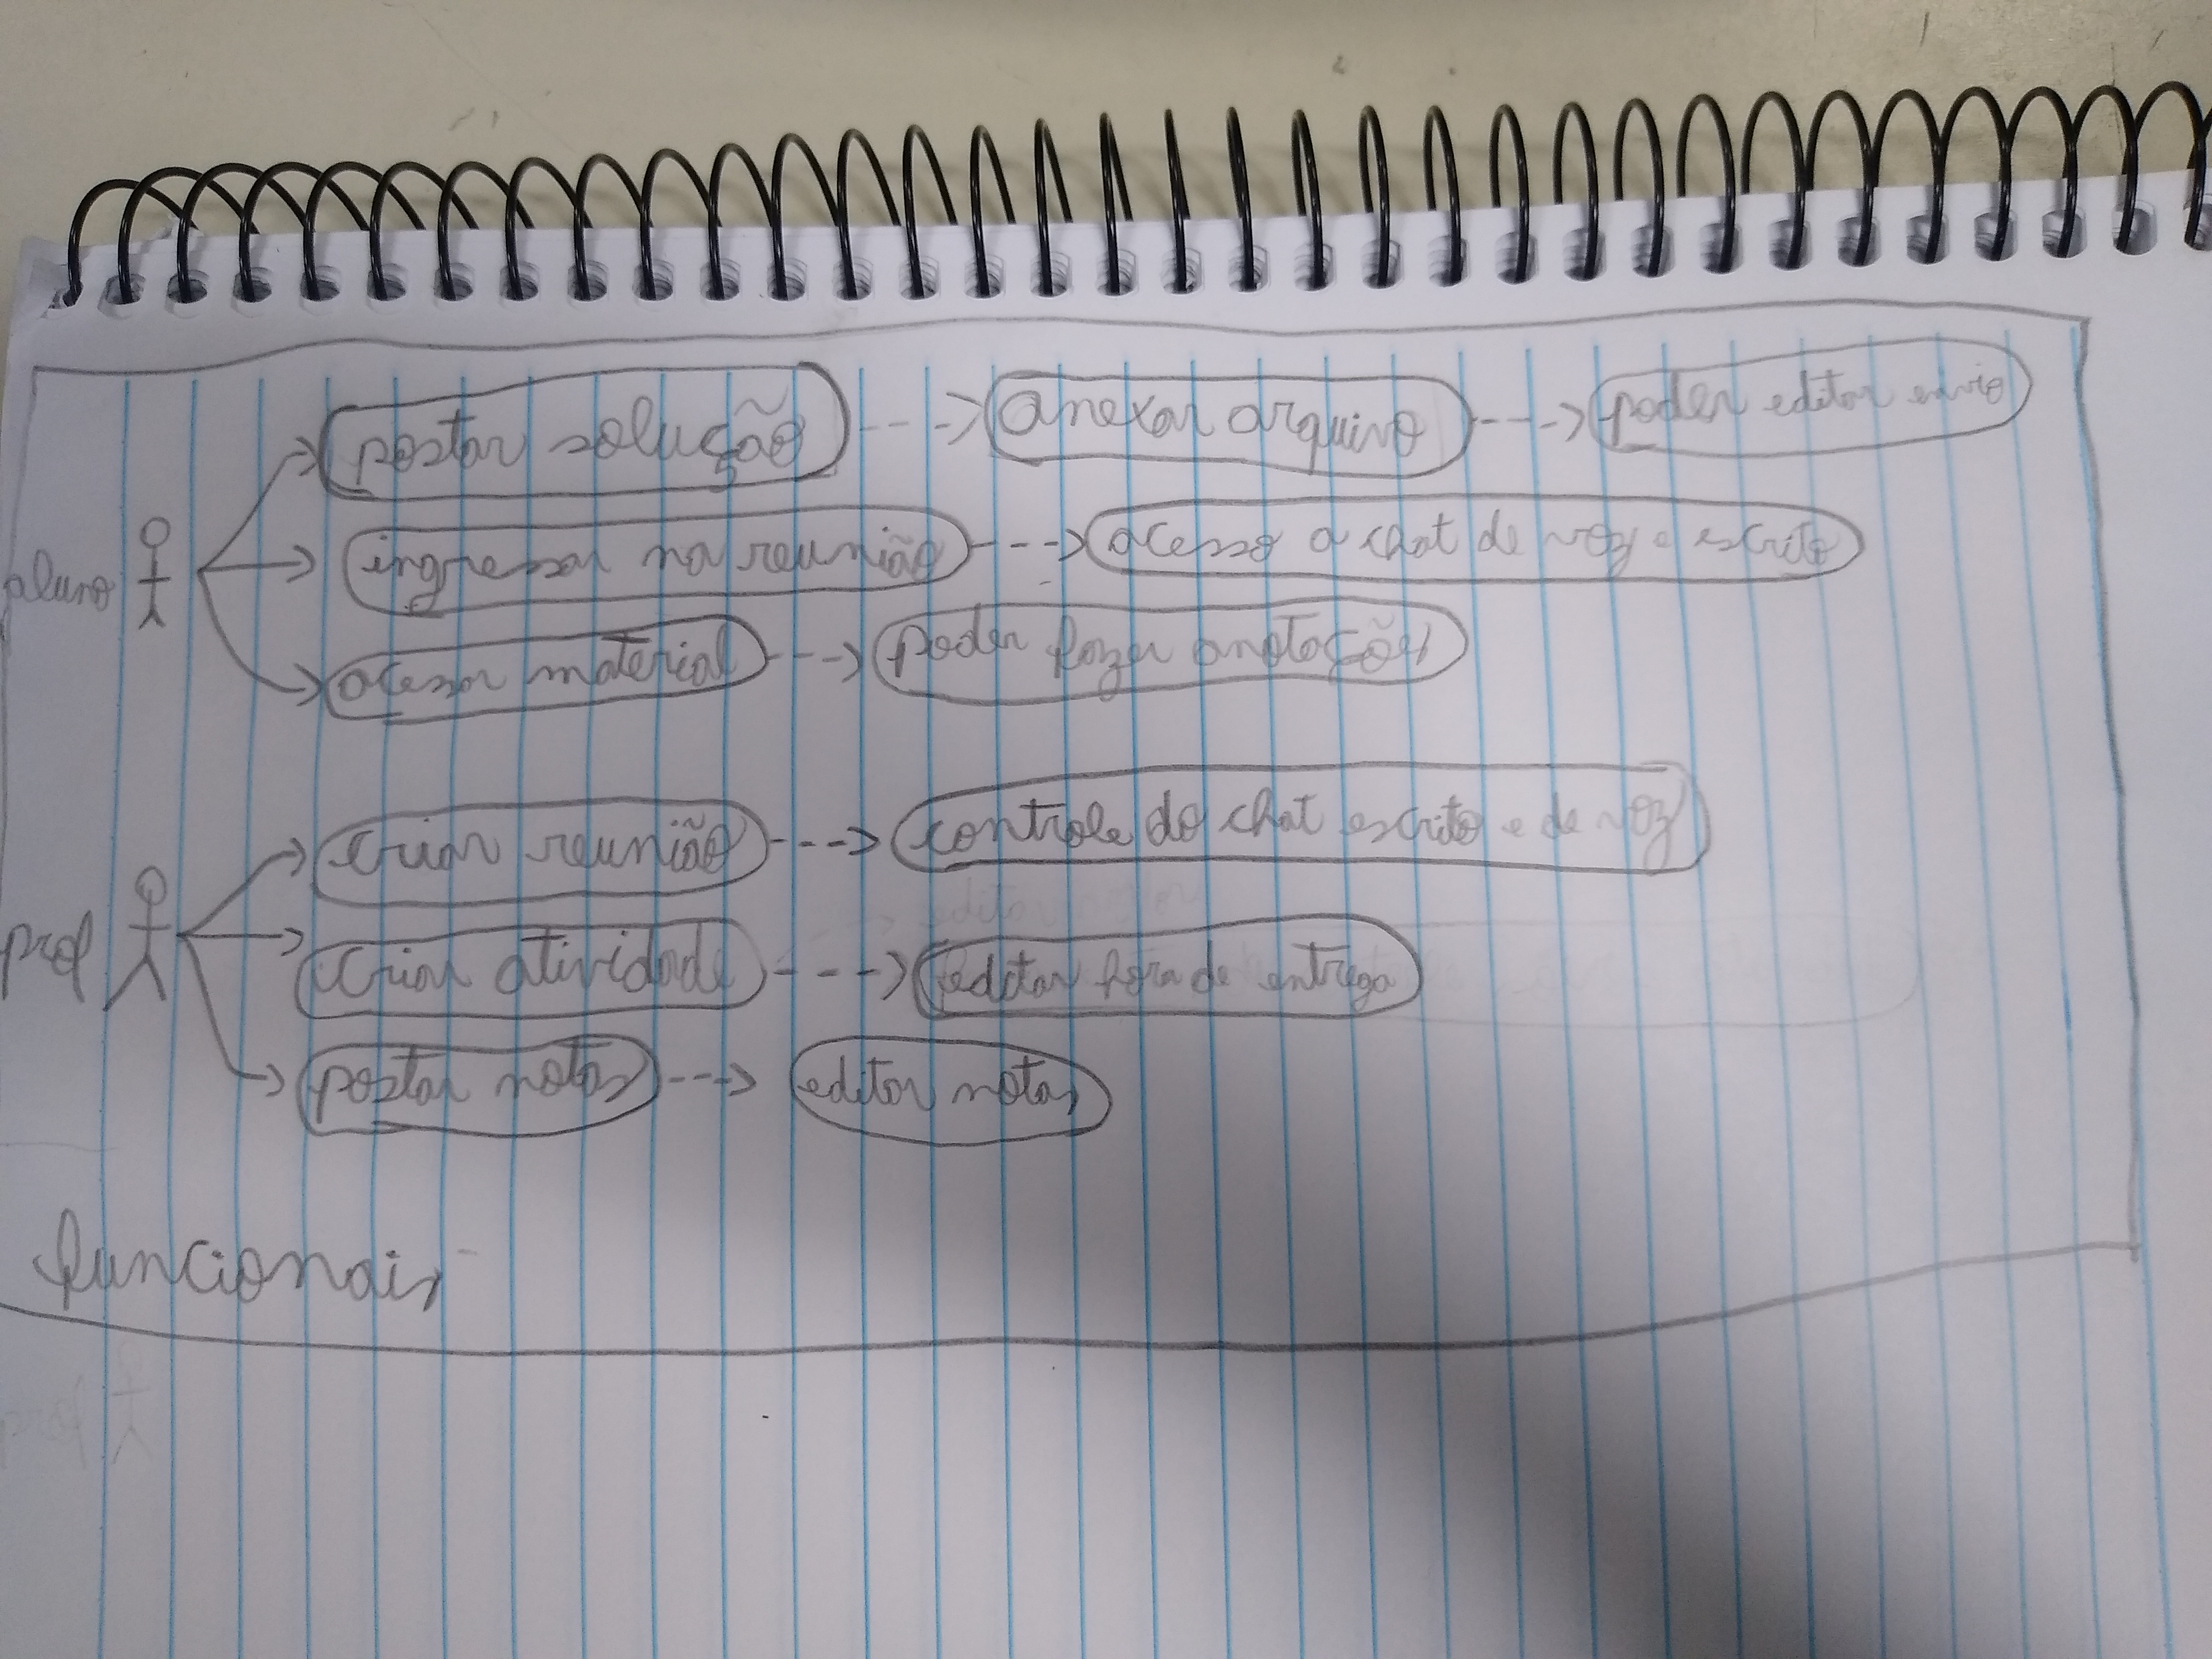 postar solução anexar arquivo poder editar envio
aluno ingressar na reunião acesso a chat de voz e escrito
acessar material poder fazer anotações
criar reunião controle do chat escrito e de voz
prof criar atividade editar hora de entrega
postar notas editar notas
funcionais